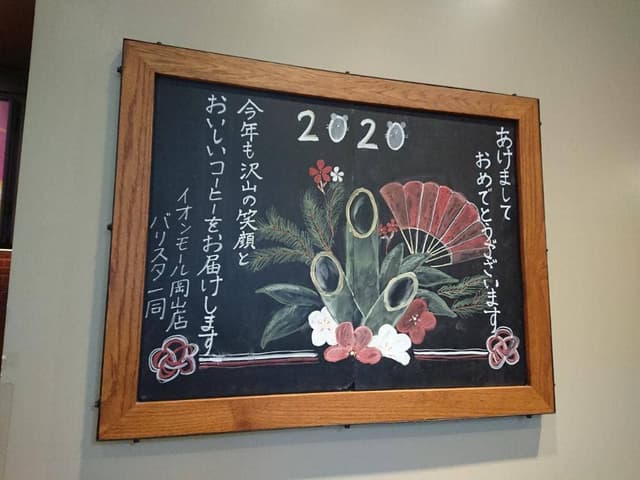 2020
あけまして
おめでとうございます
今年も沢山の笑顔と
おいしいコーヒーをお届けします
イオンモール岡山店
バリスタ一同